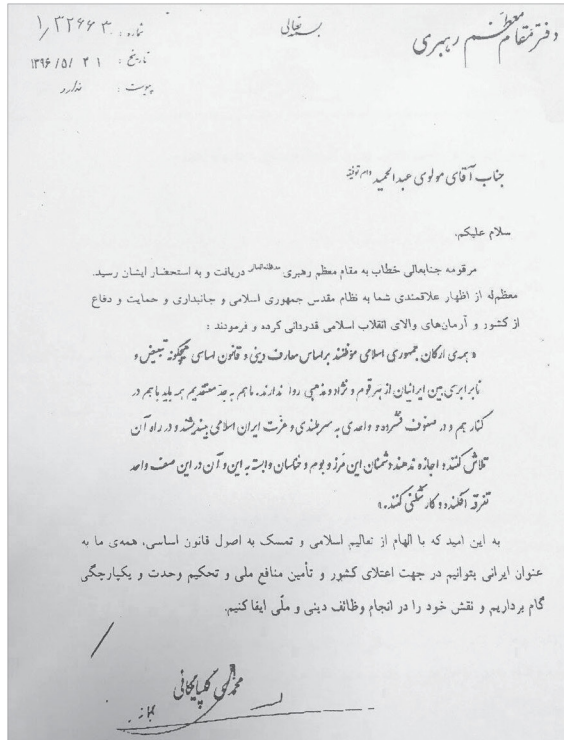 بسمه تعالی
دفتر مقام معظم رهبری
شماره : ۱/۳۲۶۶۳
تاریخ : ۱۳۹۶/۵/۲۱
پیوست : ندارد
جناب آقای مولوی عبدالحمید دام توفیقه
سلام علیکم،
مرقومه جنابعالی خطاب به مقام معظم رهبری مدظله‌العالی دریافت و به استحضار ایشان رسید.
معظم‌له از اظهار علاقمندی شما به نظام مقدس جمهوری اسلامی و جانبداری و حمایت و دفاع
از کشور و آرمان‌های والای انقلاب اسلامی قدردانی کرده و فرمودند :
« همه‌ی ارکان جمهوری اسلامی موظفند براساس معارف دینی و قانون اساسی هیچگونه تبعیض و
نابرابری بین ایرانیان از هر قوم و نژاد و مذهبی روا ندارند. ما هم به جدّ معتقدیم همه باید باهم در
کنار هم و در صفوف فشرده و واحدی به سربلندی و عزّت ایران اسلامی بیندیشند و در راه آن
تلاش کنند و اجازه ندهند دشمنان این مرز و بوم و خناسان وابسته به این و آن در این صف واحد
تفرقه افکنده و کارشکنی کنند.»
به این امید که با الهام از تعالیم اسلامی و تمسک به اصول قانون اساسی، همه‌ی ما به
عنوان ایرانی بتوانیم در جهت اعتلای کشور و تأمین منافع ملی و تحکیم وحدت و یکپارچگی
گام برداریم و نقش خود را در انجام وظائف دینی و ملّی ایفا کنیم.
محمدی گلپایگانی